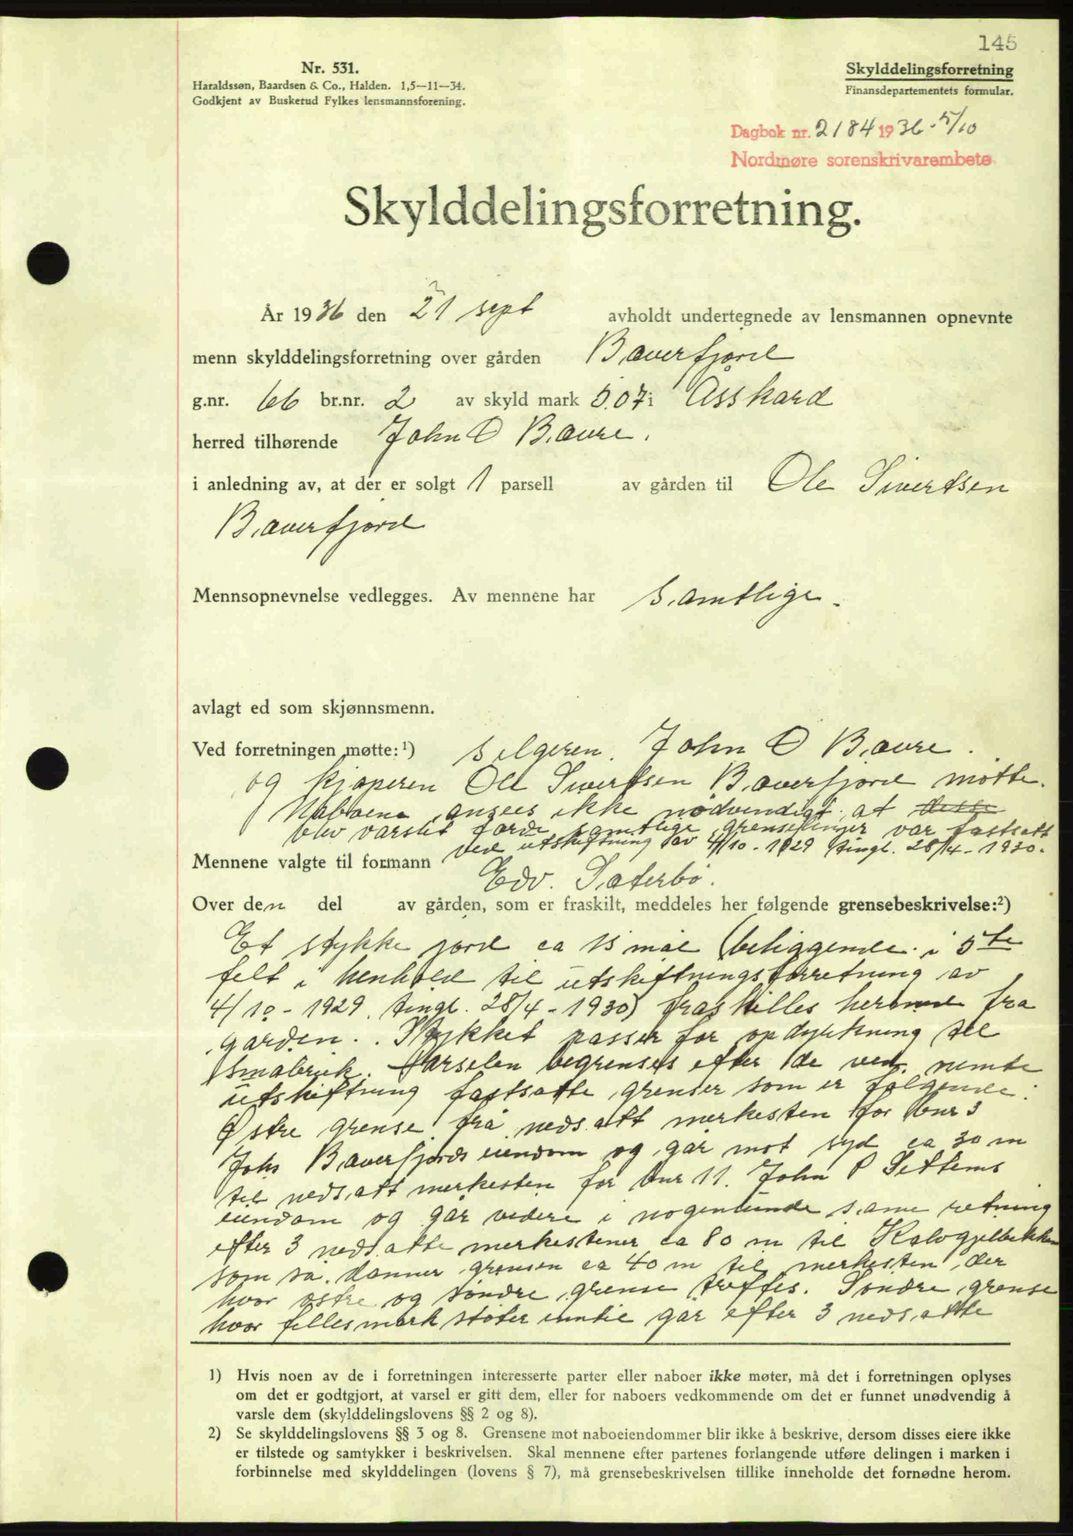 145
Nr. 531.
Haraldssøn, Baardsen & Co., Halden. 1,5—11—34.
Godkjent av Buskerud Fylkes lensmannsforening.
Skylddelingsforretning
Finansdepartementets formular.
Dagbok nr. 2184 1936 - 5/10
Nordmøre sorenskrivarembete
Skylddelingsforretning.
År 1936 den 21 sept avholdt undertegnede av lensmannen opnevnte
menn skylddelingsforretning over gården Bæverfjord
g.nr. 66 br.nr. 2 av skyld mark 5.07 i Åsskard
herred tilhørende John O Bævre.
i anledning av, at der er solgt 1 parsell av gården til Ole Sivertsen
Bæverfjord
Mennsopnevnelse vedlegges. Av mennene har samtlige.
avlagt ed som skjønnsmenn.
Ved forretningen møtte:¹) selgeren John O Bævre.
og kjøperen Ole Sivertsen Bæverfjord møtte.
Naboene ansees ikke nødvendigt at disse
blev varslet fordi samtlige grenselinjer var fastsatt
ved utskiftning av 4/10-1929 tingl. 28/4-1930.
Mennene valgte til formann Edv. Sæterbø.
Over den del av gården, som er fraskilt, meddeles her følgende grensebeskrivelse:²)
Et stykke jord ca 15 mål (beliggende i 5te
felt i henhold til utskiftningsforretning av
4/10-1929. tingl. 28/4-1930) fraskilles herved fra
garden. Stykket passer for opdyrkning til
småbruk. Parselen begrenses efter de ved nemte
utskiftning fastsatte grenser som er følgende:
Østre grense frå nedsatt merkesten for bnr 3
Johs Bæverfjords eiendom og går mot syd ca 30 m
til nedsatt merkesten for bnr 11. John P Settems
eiendom og går videre i nogenlunde same retning
efter 3 nedsatte merkestener ca 80 m til Kalvgjelbekken
som så danner grensen ca 40 m til merkesten der
hvor østre og søndre grense treffes. Søndre grense
hvor fellesmark støter inntil går efter 3 nedsatte
1) Hvis noen av de i forretningen interesserte parter eller naboer ikke møter, må det i forretningen oplyses
om det er godtgjort, at varsel er gitt dem, eller for naboers vedkommende om det er funnet unødvendig å
varsle dem (skylddelingslovens §§ 2 og 8).
2) Se skylddelingslovens §§ 3 og 8. Grensene mot naboeiendommer blir ikke å beskrive, dersom disses eiere ikke
er tilstede og samtykker i beskrivelsen. Skal mennene efter partenes forlangende utføre delingen i marken i
forbinnelse med skylddelingen (lovens § 7), må grensebeskrivelsen tillike inneholde det fornødne herom.